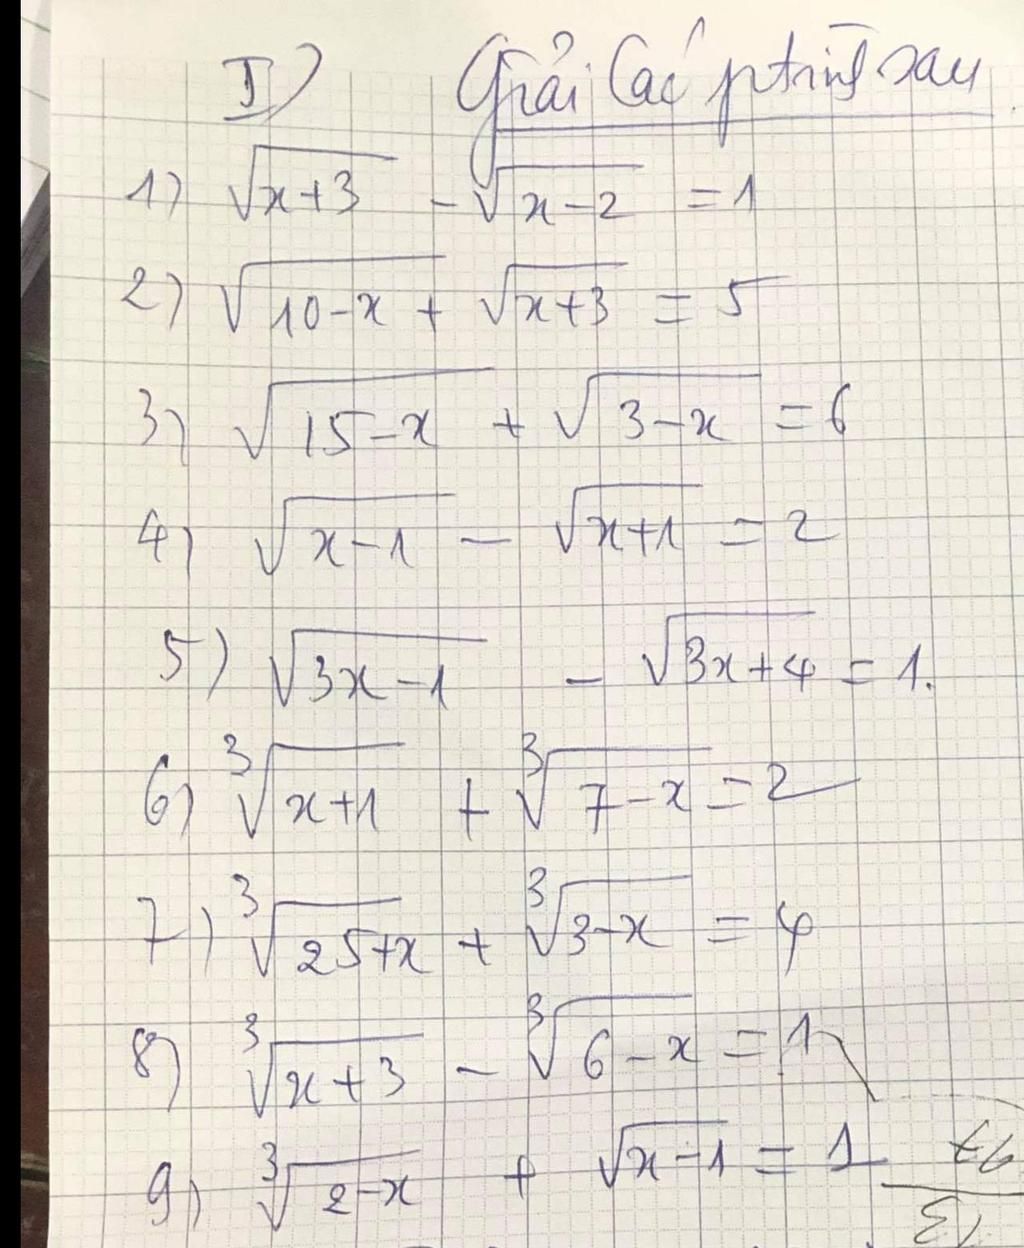 I) Giải Các ptrình sau
1) √(x+3) - √(x-2) = 1
2) √(10-x) + √(x+3) = 5
3) √(15-x) + √(3-x) = 6
4) √(x-1) - √(x+1) = 2
5) √(3x-1) - √(3x+4) = 1.
6) ³√(x+1) + ³√(7-x) = 2
7) ³√(25+x) + ³√(3-x) = 4
8) ³√(x+3) - ³√(6-x) = 1
9) ³√(2-x) + √(x-1) = 1